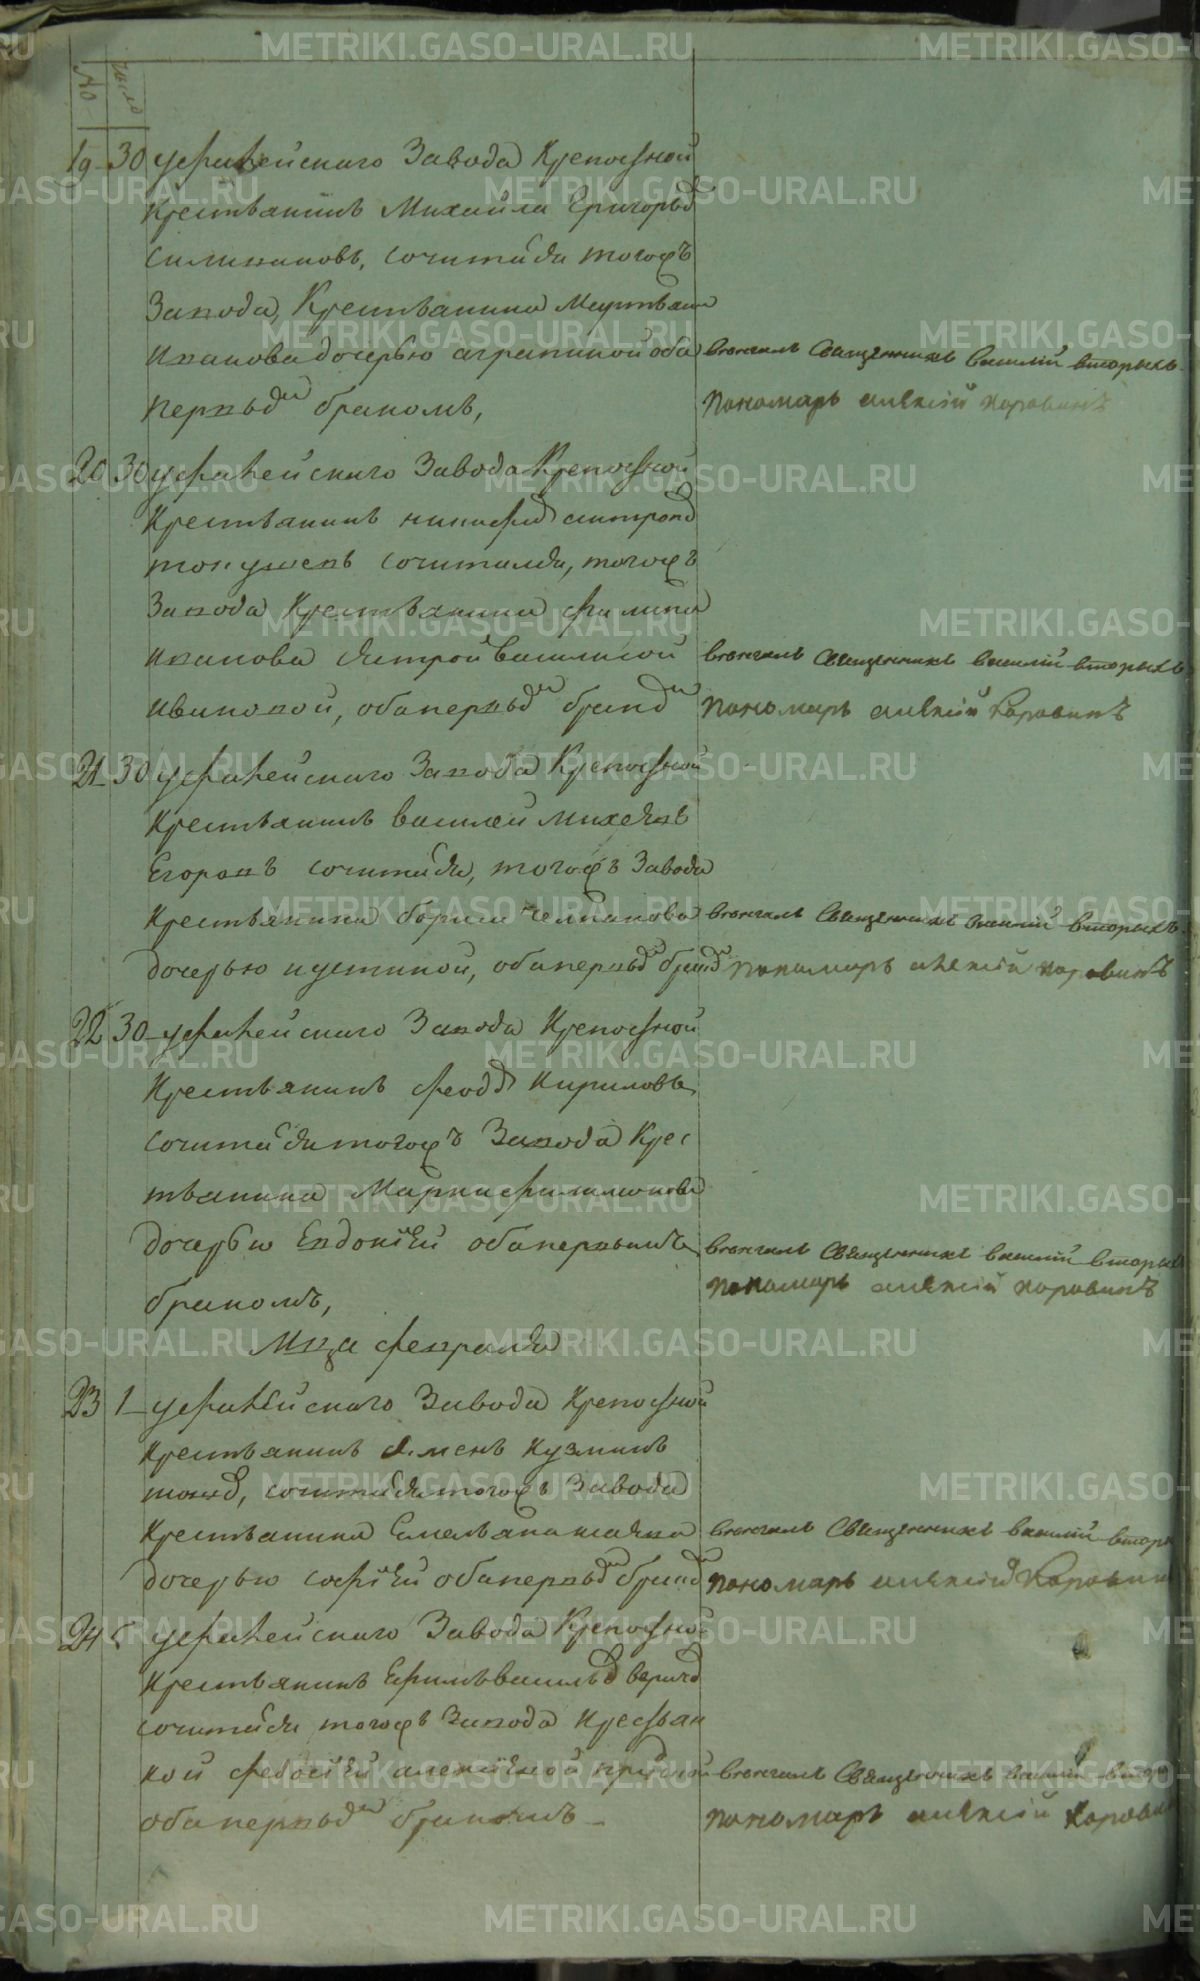 № число
19 30 уфалейскаго Завода Крепосной
Крестьянинъ Михайла Григорьев
Силивановъ, сочитался тогожъ
Завода, Крестьянина
Иванова дочерью аграпиной оба
первым бракомъ,
венчалъ Священникъ василий вторыхъ
пономарь алексiй коровинъ
20 30 уфалейскаго Завода Крепосной
Крестьянинъ
сочитался, тогожъ
Завода Крестьянина филипа
Иванова сестрой василисой
Ивановой, оба первым браком
венчалъ Священникъ василий вторыхъ
пономарь алексiй Коровинъ
21 30 уфалейскаго Завода Крепосной
Крестьянинъ василей михеевъ
Егоровъ сочитался, тогожъ Завода
Крестьянина бориса челпанова
дочерью иустиной, оба первым браком
венчалъ Священникъ василий вторыхъ
пономарь алексiй коровинъ
22 30 уфалейскаго Завода Крепосной
Крестьянинъ феод Кириловъ
сочитался тогожъ Завода Крес
тьянина Марка филимонова
дочерью Евдокiей оба первымъ
бракомъ,
венчалъ Священникъ василий вторыхъ
пономарь алексiй коровинъ
Мца февраля
23 1 уфалейскаго Завода Крепосной
Крестьянинъ семенъ Кузминъ
сочитался тогожъ Завода
Крестьянина Емельяна
дочерью софiей оба первым браком
венчалъ Священникъ василий вторы
пономарь алексiй Коровин
24 5 уфалейскаго Завода Крепосной
Крестьянинъ Ефимъ васильев
сочитался тогожъ Завода Кресьян
кой федосiей алексiевной
оба первым бракомъ
венчалъ Священникъ василий втор
пономарь алексiй Коровин
METRIKI.GASO-URAL.RU